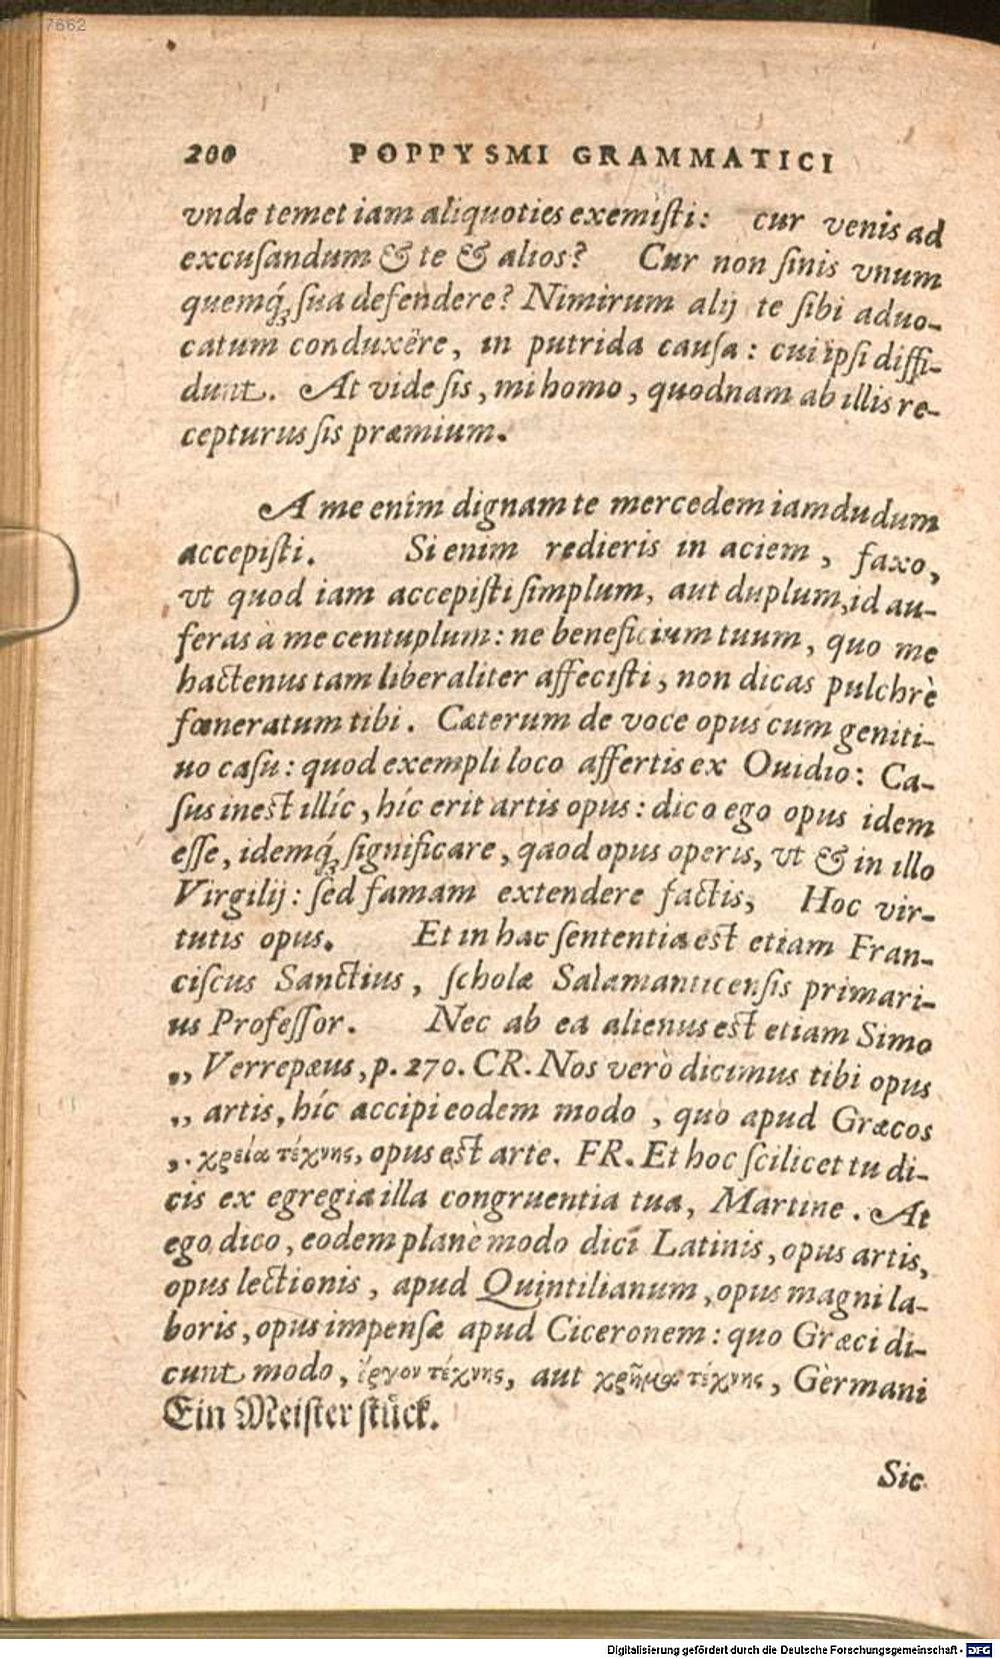 7662
200 POPPYSMI GRAMMATICI
vnde temet iam aliquoties exemiſti: cur venis ad
excuſandum & te & alios? Cur non ſinis vnum
quemq́ꝫ ſua defendere? Nimirum alij te ſibi aduo-
catum conduxëre, in putrida cauſa: cui ipſi diffi-
dunt. At vide ſis, mi homo, quodnam ab illis re-
cepturus ſis præmium.
A me enim dignam te mercedem iamdudum
accepiſti. Si enim redieris in aciem, faxo,
vt quod iam accepiſti ſimplum, aut duplum, id au-
feras à me centuplum: ne beneficium tuum, quo me
hactenus tam liberaliter affeciſti, non dicas pulchrè
fœneratum tibi. Cæterum de voce opus cum geniti-
uo caſu: quod exempli loco affertis ex Ouidio: Ca-
ſus inest illíc, híc erit artis opus: dico ego opus idem
eſſe, idemq́ꝫ ſignificare, qaod opus operis, vt & in illo
Virgilij: ſed famam extendere factis, Hoc vir-
tutis opus. Et in hac ſententia est etiam Fran-
ciſcus Sanctius, ſcholæ Salamanticenſis primari-
us Profeſſor. Nec ab ea alienus est etiam Simo
„ Verrepæus, p. 270. CR. Nos verò dicimus tibi opus
„ artis, híc accipi eodem modo, quo apud Græcos
„ χρεία τέχνης, opus est arte. FR. Et hoc ſcilicet tu di-
cis ex egregia illa congruentia tua, Martine. At
ego dico, eodem planè modo dici Latinis, opus artis,
opus lectionis, apud Quintilianum, opus magni la-
boris, opus impenſæ apud Ciceronem: quo Græci di-
cunt modo, ἔργον τέχνης, aut χρῆμα τέχνης, Germani
Ein Meiſterſtück.
Sic
Digitalisierung gefördert durch die Deutsche Forschungsgemeinschaft - DFG